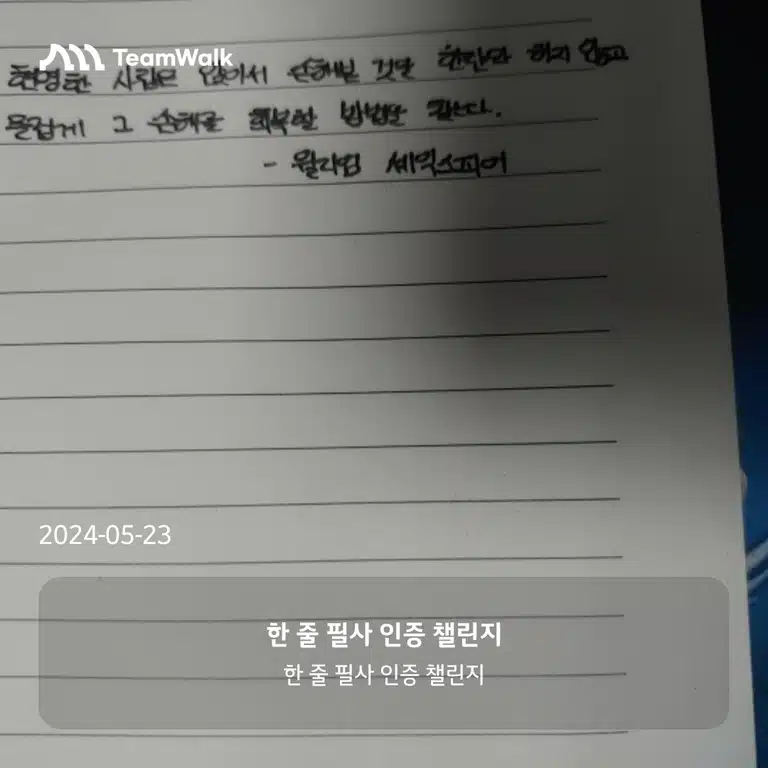 TeamWalk
현명한 사람은 앉아서 손해본 것만 한탄만 하지 않고
즐겁게 그 손해를 회복할 방법만 찾는다.
- 윌리엄 세익스피어
2024-05-23
한 줄 필사 인증 챌린지
한 줄 필사 인증 챌린지